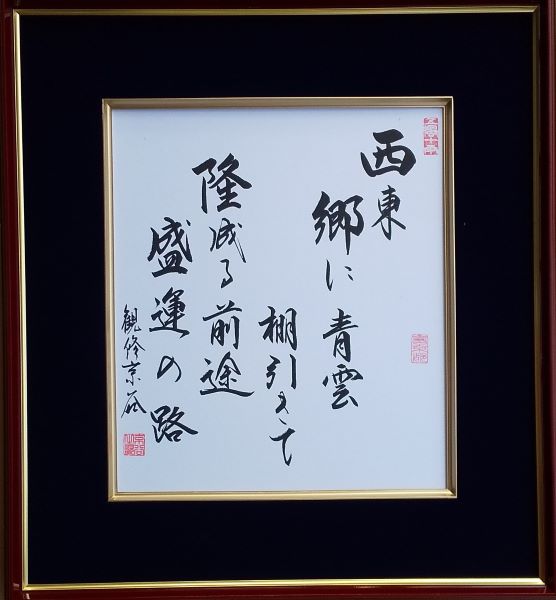 西東
郷に青雲
棚引きて
隆成る前途
盛運の路
観修京